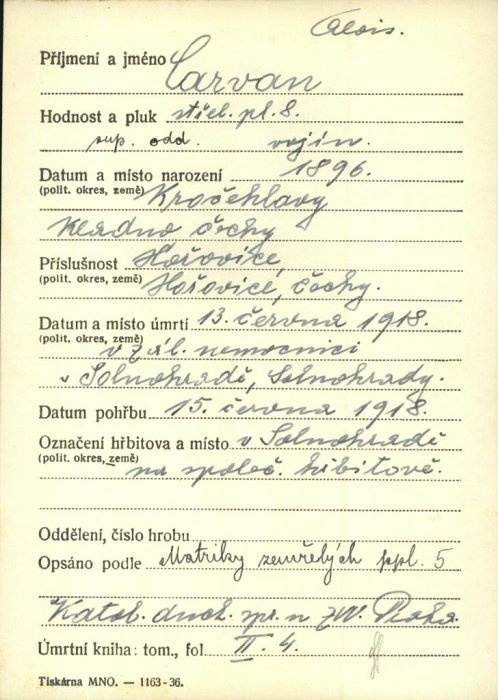 Alois.
Příjmení a jméno Carvan
Hodnost a pluk střel. pl. 8.
sup. odd. vojín.
Datum a místo narození 1896.
(polit. okres, země) Kročehlavy
Kladno Čechy
Příslušnost Hořovice,
(polit. okres, země) Hořovice, Čechy.
Datum a místo úmrtí 13. června 1918.
(polit. okres, země) v zál. nemocnici
v Solnohradě, Solnohrady.
Datum pohřbu 15. června 1918.
Označení hřbitova a místo v Solnohradě
(polit. okres, země) na společ. hřbitově.
Oddělení, číslo hrobu
Opsáno podle Matriky zemřelých ppl. 5
Katol. duch. spr. n ZVV. Praha.
Úmrtní kniha: tom., fol. II. 4.
Tiskárna MNO. — 1163-36.